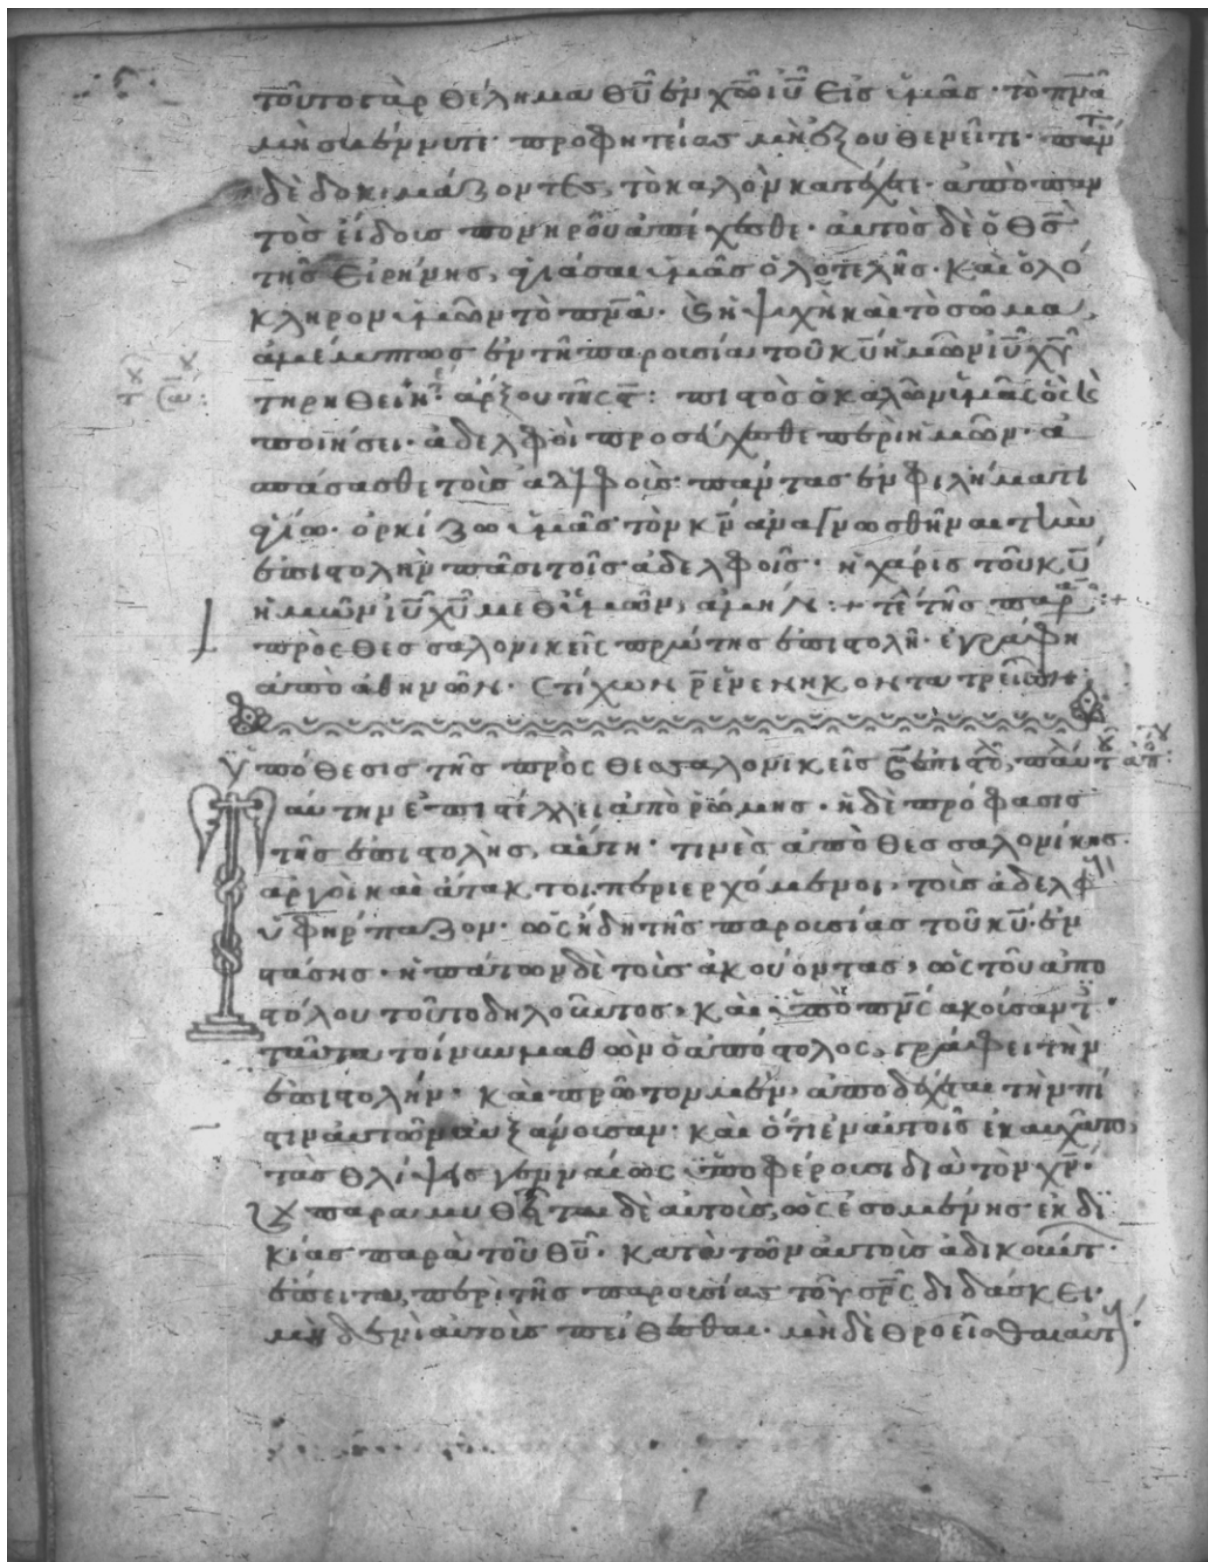 τοῦτο γὰρ θέλημα θ̅υ̅ ἐν χ̅ω̅ ι̅υ̅ εἰς ὑμᾶς· τὸ π̅ν̅α̅
μὴ σβέννυτε· προφητείας μὴ ἐξουθενεῖτε· πάντ
δὲ δοκιμάζοντες, τὸ καλὸν κατέχετε· ἀπὸ παν
τὸς εἴδους πονηροῦ ἀπέχεσθε· αὐτὸς δὲ ὁ θ̅ς̅
τῆς εἰρήνης, ἁγιάσαι ὑμᾶς ὁλοτελῆς· καὶ ὁλό
κληρον ὑμῶν τὸ π̅ν̅α̅· καὶ ἡ ψυχὴ καὶ τὸ σῶμα,
ἀμέμπτως ἐν τῆ παρουσία τοῦ κ̅υ̅ ἡμῶν ι̅υ̅ χ̅υ̅
τηρηθείη· πιστὸς ὁ καλῶν ὑμᾶς ὃς καὶ
ποιήσει· ἀδελφοὶ προσεύχεσθε περὶ ἡμῶν· ἀ
σπάσασθε τοὺς ἀδελφοὺς πάντας ἐν φιλήματι
ἁγίω· ὁρκίζω ὑμᾶς τὸν κ̅ν̅ ἀναγνωσθῆναι τὴν
ἐπιστολὴν πᾶσι τοῖς ἀδελφοῖς· ἡ χάρις τοῦ κ̅υ̅
ἡμῶν ι̅υ̅ χ̅υ̅ μεθ' ὑμῶν, ἀμήν :+ τέ τῆς παρ :+
πρὸς θεσσαλονικεῖς πρώτης ἐπιστολῆ· ἐγράφη
ἀπὸ ἀθηνῶν· στίχων ρ̅ ἐνενηκοντα τρεῖς
ὑπόθεσις τῆς πρὸς θεσσαλονικεῖς β̅ ἐπιστολ,
ταύτην ἐπιστέλλει ἀπὸ ρώμης· ἡ δὲ πρόφασις
τῆς ἐπιστολῆς, αὕτη· τινὲς ἀπὸ θεσσαλονίκης
ἀργοὶ καὶ ἄτακτοι περιερχόμενοι, τοὺς ἀδελφ
ὑφήρπαζον· ὡς ἤδη τῆς παρουσίας τοῦ κ̅υ̅ ἐν
στάσης· ἠπάτων δὲ τοὺς ἀκούοντας, ὡς τοῦ ἀπο
στόλου τοῦτο δηλοῦντος, καὶ ὑπὸ π̅ν̅ς̅ ἀκούσαντ
ταῦτα τοίνυν μαθὼν ὁ ἀπόστολος, γράφει τὴν
ἐπιστολήν· καὶ πρῶτον μὲν, ἀποδέχεται τὴν πί
στιν αὐτῶν αὐξάνουσαν· καὶ ὅτι ἐν αὐτοῖς ἐκαυχᾶτο,
τὰς θλίψεις γενναίως ὑποφέρουσι διὰ τὸν χ̅ν̅·
παραμυθεῖται δὲ αὐτοὺς, ὡς ἐσομένης ἐκδι
κίας παρὰ τοῦ θ̅υ̅· κατὰ τῶν αὐτοὺς ἀδικούντ·
ἔπειτα, περὶ τῆς παρουσίας τοῦ σ̅ρ̅ς̅ διδάσκει·
μηδενὶ αὐτοὺς πείθεσθαι· μηδὲ θροεῖσθαι αὐτ